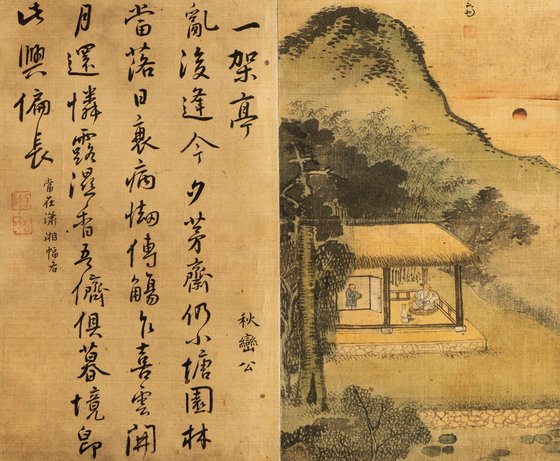 一架亭
秋巒公
亂後逢今夕茅齋仍小塘園林
當落日衰病懶傳觴乍喜雲開
月還憐露濕香吾儕俱暮境即
此興偏長
當在瀟湘幅右